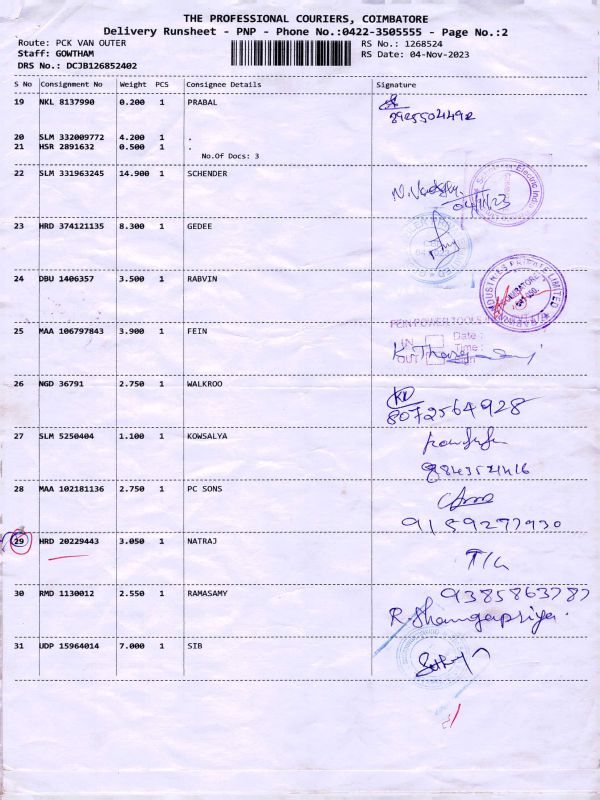 THE PROFESSIONAL COURIERS, COIMBATORE
Delivery Runsheet - PNP - Phone No.:0422-3505555 - Page No.:2
Route: PCK VAN OUTER RS No.: 1268524
Staff: GOWTHAM RS Date: 04-Nov-2023
DRS No.: DCJB126852402
S No Consignment No Weight PCS Consignee Details Signature
19 NKL 8137990 0.200 1 PRABAL
8925504492
20 SLM 332009772 4.200 1 .
21 HSR 2891632 0.500 1 .
No.Of Docs: 3
22 SLM 331963245 14.900 1 SCHENDER
04/11/23
23 HRD 374121135 8.300 1 GEDEE
24 DBU 1406357 3.500 1 RABVIN
25 MAA 106797843 3.900 1 FEIN
FEIN POWER TOOLS
IN Date :
OUT Time :
26 NGD 36791 2.750 1 WALKROO
8072564928
27 SLM 5250404 1.100 1 KOWSALYA
28 MAA 102181136 2.750 1 PC SONS
9159277930
29 HRD 20229443 3.050 1 NATRAJ
30 RMD 1130012 2.550 1 RAMASAMY
9385863787
R. Shamgapriya.
31 UDP 15964014 7.000 1 SIB